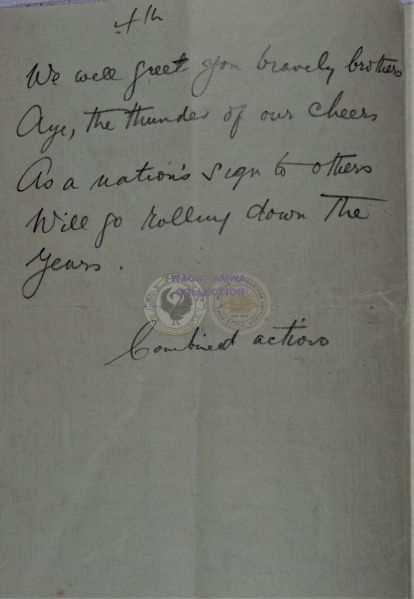 4th
We will greet you bravely brothers
Aye, the thunder of our cheers
As a nation's sign to others
Will go rolling down The
Years.
WAGS - AMWA
COLLECTION
Combined actions